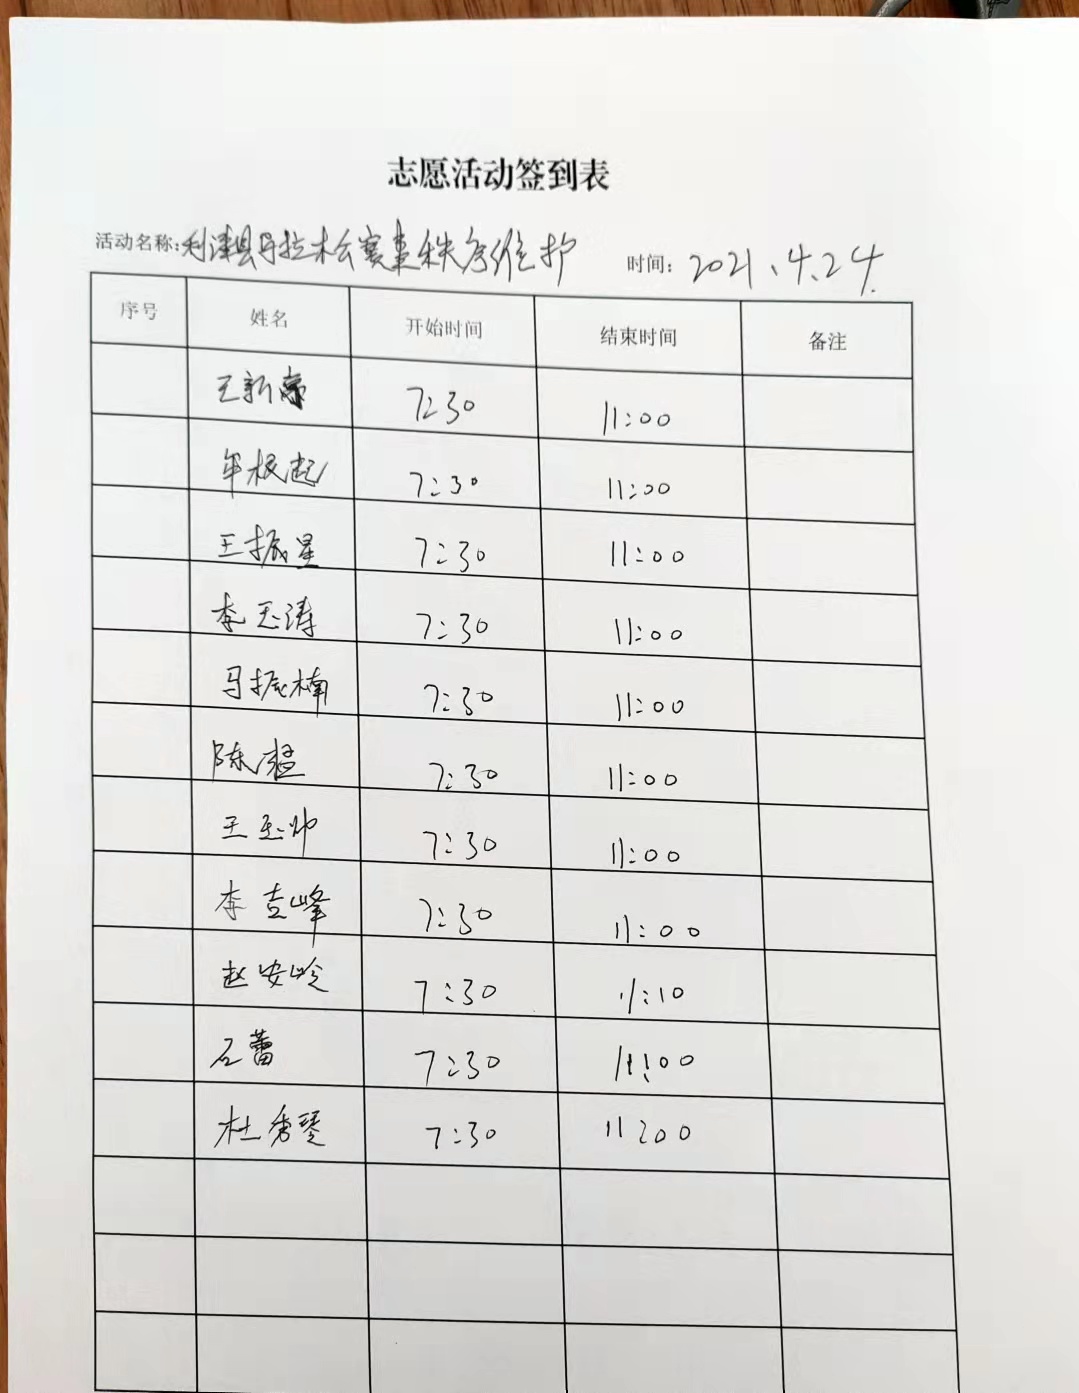 志愿活动签到表
活动名称:利津县马拉松赛事秩序维护 时间: 2021.4.24.
序号 姓名 开始时间 结束时间 备注
王新 7:30 11:00
年根起 7:30 11:00
王振星 7:30 11:00
李玉涛 7:30 11:00
马振楠 7:30 11:00
陈猛 7:30 11:00
王玉帅 7:30 11:00
李吉峰 7:30 11:00
赵安岭 7:30 11:10
石蕾 7:30 11:00
杜秀琴 7:30 11:00